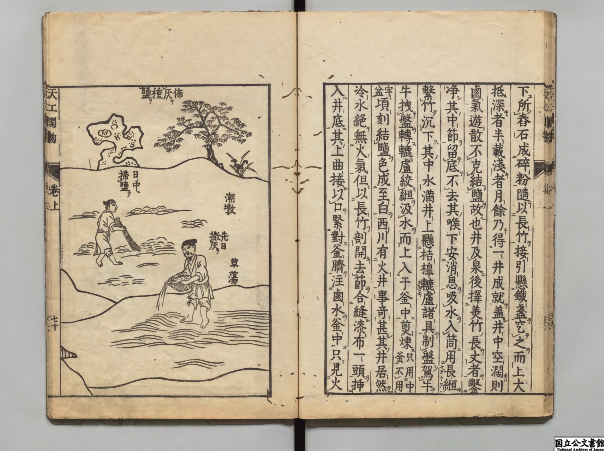 下所舂石成碎粉隨以長竹接引懸鐵盞挖之而上大
抵深者半載淺者月餘乃得一井成就蓋井中空濶則
鹵氣遊散不克結鹽故也井及泉後擇美竹長丈者鑿
淨其中節留底不去其喉下安消息吸水入筒用長緪
繫竹沉下其中水滿井上懸桔橰轆轤諸具制盤駕牛
牛拽盤轉轆轤絞緪汲水而上入于釜中煎煉只用中釜不用
牢盆頃刻結鹽色成至白西川有火井事奇甚其井居然
冷水絕無火氣但以長竹剖開去節合縫漆布一頭插
入井底其上曲接以口緊對釜臍注鹵水釜中只見火
佈灰種鹽
潮散
草蕩
先日撒灰
日中掃鹽
天工開物
卷上
七十
国立公文書館
National Archives of Japan